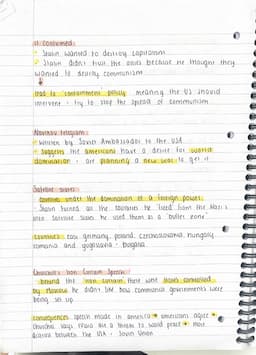 it continued:
- Stalin wanted to destroy capitalism
- Stalin didn't trust the allies because he thought they
wanted to destroy communism
lead to 'containment policy' meaning the US should
intervene + try to stop the spread of communism
Novikov telegram:
- written by Soviet Ambassador to the USA
- Suggests the americans have a desire for world
domination + are planning a new war to get it
Satellite states
- countries under the domination of a foreign power.
Stalin turned all the countries he 'freed' from the Nazi's
into Satellite States. he used them as a 'buffer zone'
countries: east germany, poland, czechoslovakia, hungary
romania and yugoslavia + bulgaria
Churchill's 'Iron Curtain Speech'
- behind the 'iron curtain' there were states controlled
by Moscow. he didn't like how communist governments were
being set up
consequences: speech made in america → americans agree →
Churchill says USSR are a threat to world peace → more
distance between the USA + Soviet Union